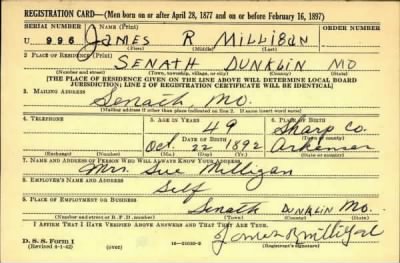 REGISTRATION CARD—(Men born on or after April 28, 1877 and on or before February 16, 1897)
SERIAL NUMBER 1. NAME (Print) ORDER NUMBER
U 996 JAMES R MILLIGAN
(First) (Middle) (Last)
2. PLACE OF RESIDENCE (Print)
SENATH DUNKLIN MO
(Number and street) (Town, township, village, or city) (County) (State)
[THE PLACE OF RESIDENCE GIVEN ON THE LINE ABOVE WILL DETERMINE LOCAL BOARD
JURISDICTION; LINE 2 OF REGISTRATION CERTIFICATE WILL BE IDENTICAL]
3. MAILING ADDRESS
Senath Mo.
[Mailing address if other than place indicated on line 2. If same insert word same]
4. TELEPHONE 5. AGE IN YEARS 6. PLACE OF BIRTH
49 Sharp Co.
DATE OF BIRTH (Town or county)
Oct. 22 1892 Arkansas
(Exchange) (Number) (Mo.) (Day) (Yr.) (State or country)
7. NAME AND ADDRESS OF PERSON WHO WILL ALWAYS KNOW YOUR ADDRESS
Mrs. Sue Milligan
8. EMPLOYER'S NAME AND ADDRESS
Self
9. PLACE OF EMPLOYMENT OR BUSINESS
Senath DUNKLIN MO.
(Number and street or R. F. D. number) (Town) (County) (State)
I AFFIRM THAT I HAVE VERIFIED ABOVE ANSWERS AND THAT THEY ARE TRUE.
D. S. S. Form 1 James R Milligan
(Revised 4-1-42) (over) (Registrant's signature)